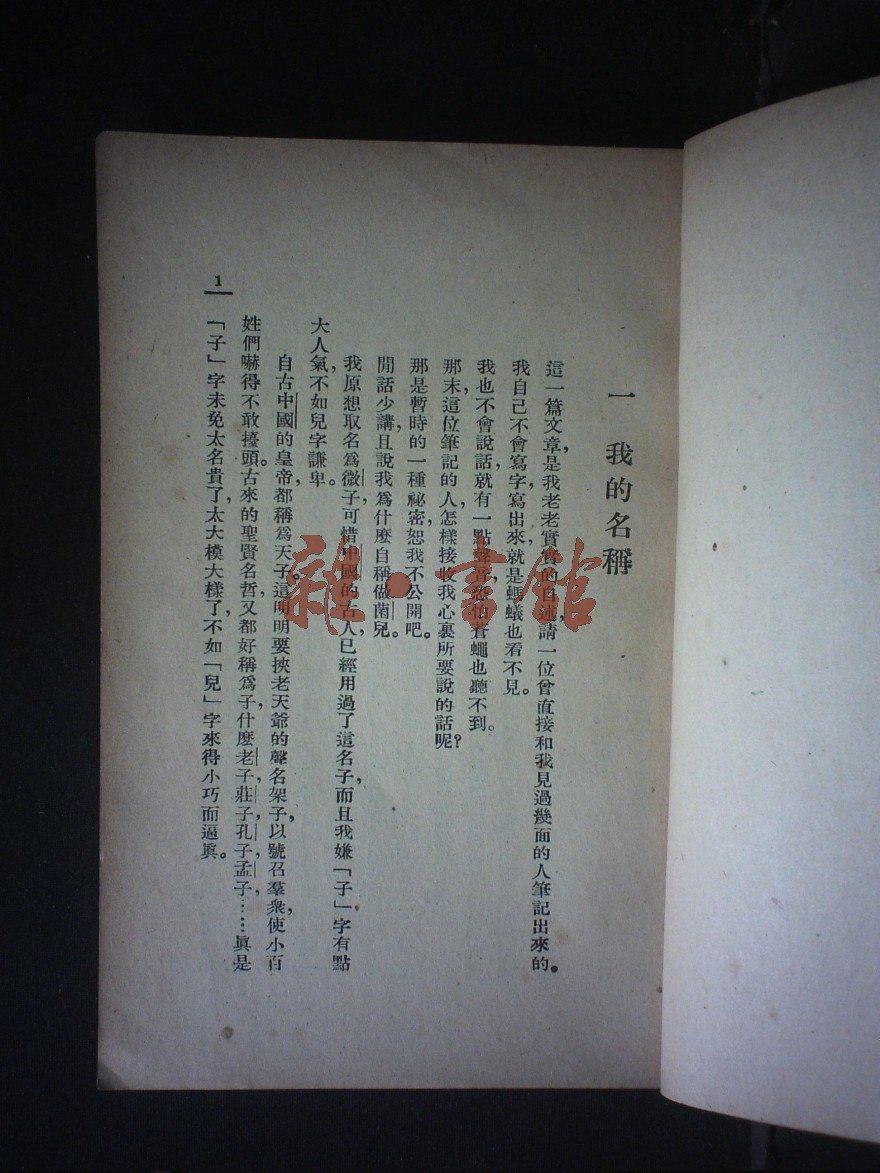 一 我的名稱
這一篇文章,是我老老實實的自述,請一位曾直接和我見過幾面的人筆記出來的。
我自己不會寫字,寫出來,就是螞蟻也看不見。
我也不會說話,就有一點聲音,恐怕蒼蠅也聽不到。
那末,這位筆記的人,怎樣接收我心裏所要說的話呢?
那是暫時的一種祕密,恕我不公開吧。
閒話少講,且說我爲什麽自稱做菌兒。
我原想取名爲微子,可惜中國的古人,已經用過了這名子,而且我嫌「子」字有點
大人氣,不如兒字謙卑。
自古中國的皇帝,都稱爲天子。這明明要挾老天爺的聲名架子,以號召羣衆,使小百
姓們嚇得不敢擡頭。古來的聖賢名哲,又都好稱爲子,什麽老子,莊子,孔子,孟子……眞是
「子」字未免太名貴了,太大模大樣了,不如「兒」字來得小巧而逼眞。
1
雜·書館